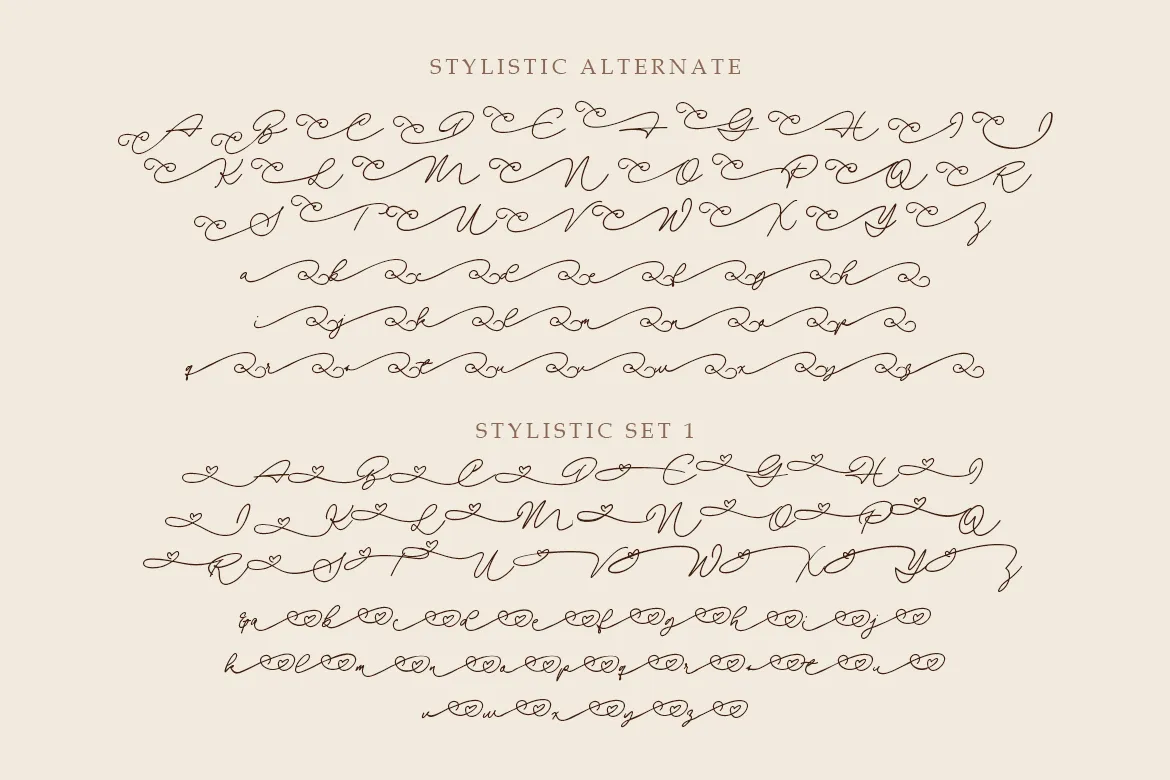 STYLISTIC ALTERNATE
A B C D E F G H I J
K L M N O P Q R
S T U V W X Y Z
a b c d e f g h
i j k l m n o p
q r s t u v w x y z
STYLISTIC SET 1
A B C D E G H I
J K L M N O P Q
R S T U V W X Y Z
& a b c d e f g h i j
k l m n o p q r s t u
v w x y z